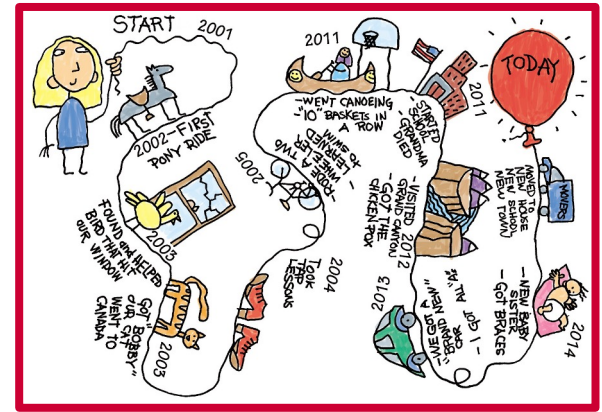 START
2001
2002-FIRST
PONY RIDE
2003
FOUND and HELPED
BIRD THAT HIT
OUR WINDOW
2003
GOT "BOBBY"
OUR CAT
WENT TO
CANADA
2004
TOOK
TAP
LESSONS
2005
-RODE A TWO
WHEELER
-LEARNED
TO SWIM
2011
-WENT CANOEING
-"10" BASKETS IN
A ROW
2011
-STARTED
SCHOOL
-GRANDMA
DIED
-VISITED 2012
GRAND CANYON
-GOT THE
CHICKEN POX
2013
-WE GOT A
"BRAND NEW"
CAR
-I GOT
ALL "A"s
2014
-NEW BABY
SISTER
-GOT BRACES
MOVERS
MOVED TO
NEW HOUSE
NEW SCHOOL
NEW TOWN
TODAY